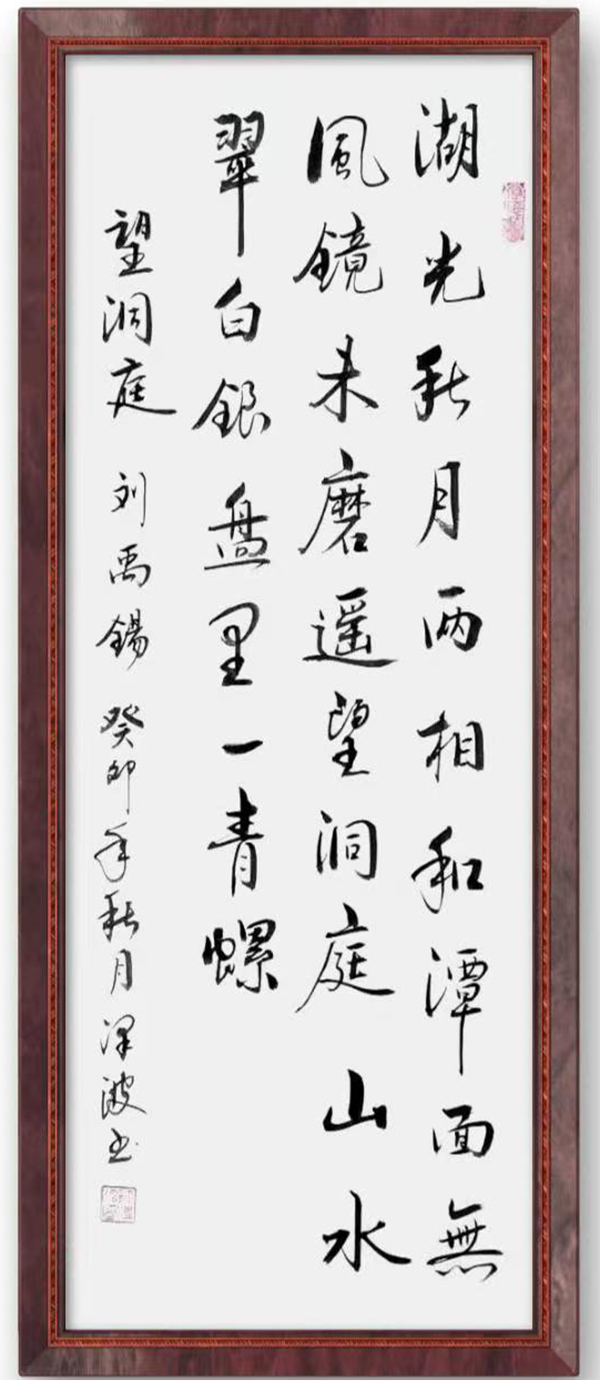 湖光秋月两相和潭面無
風鏡未磨遥望洞庭山水
翠白銀盘里一青螺
望洞庭 刘禹錫 癸卯年秋月泽波书